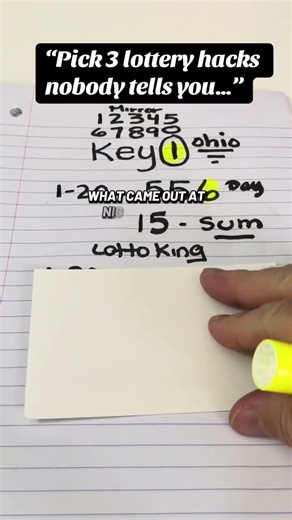 “Pick 3 lottery hacks
nobody tells you...”
Mirror
1 2 3 4 5
6 7 8 9 0
Key 1 Ohio
556 Day
WHAT CAME OUT AT
15 - Sum
Lotto King